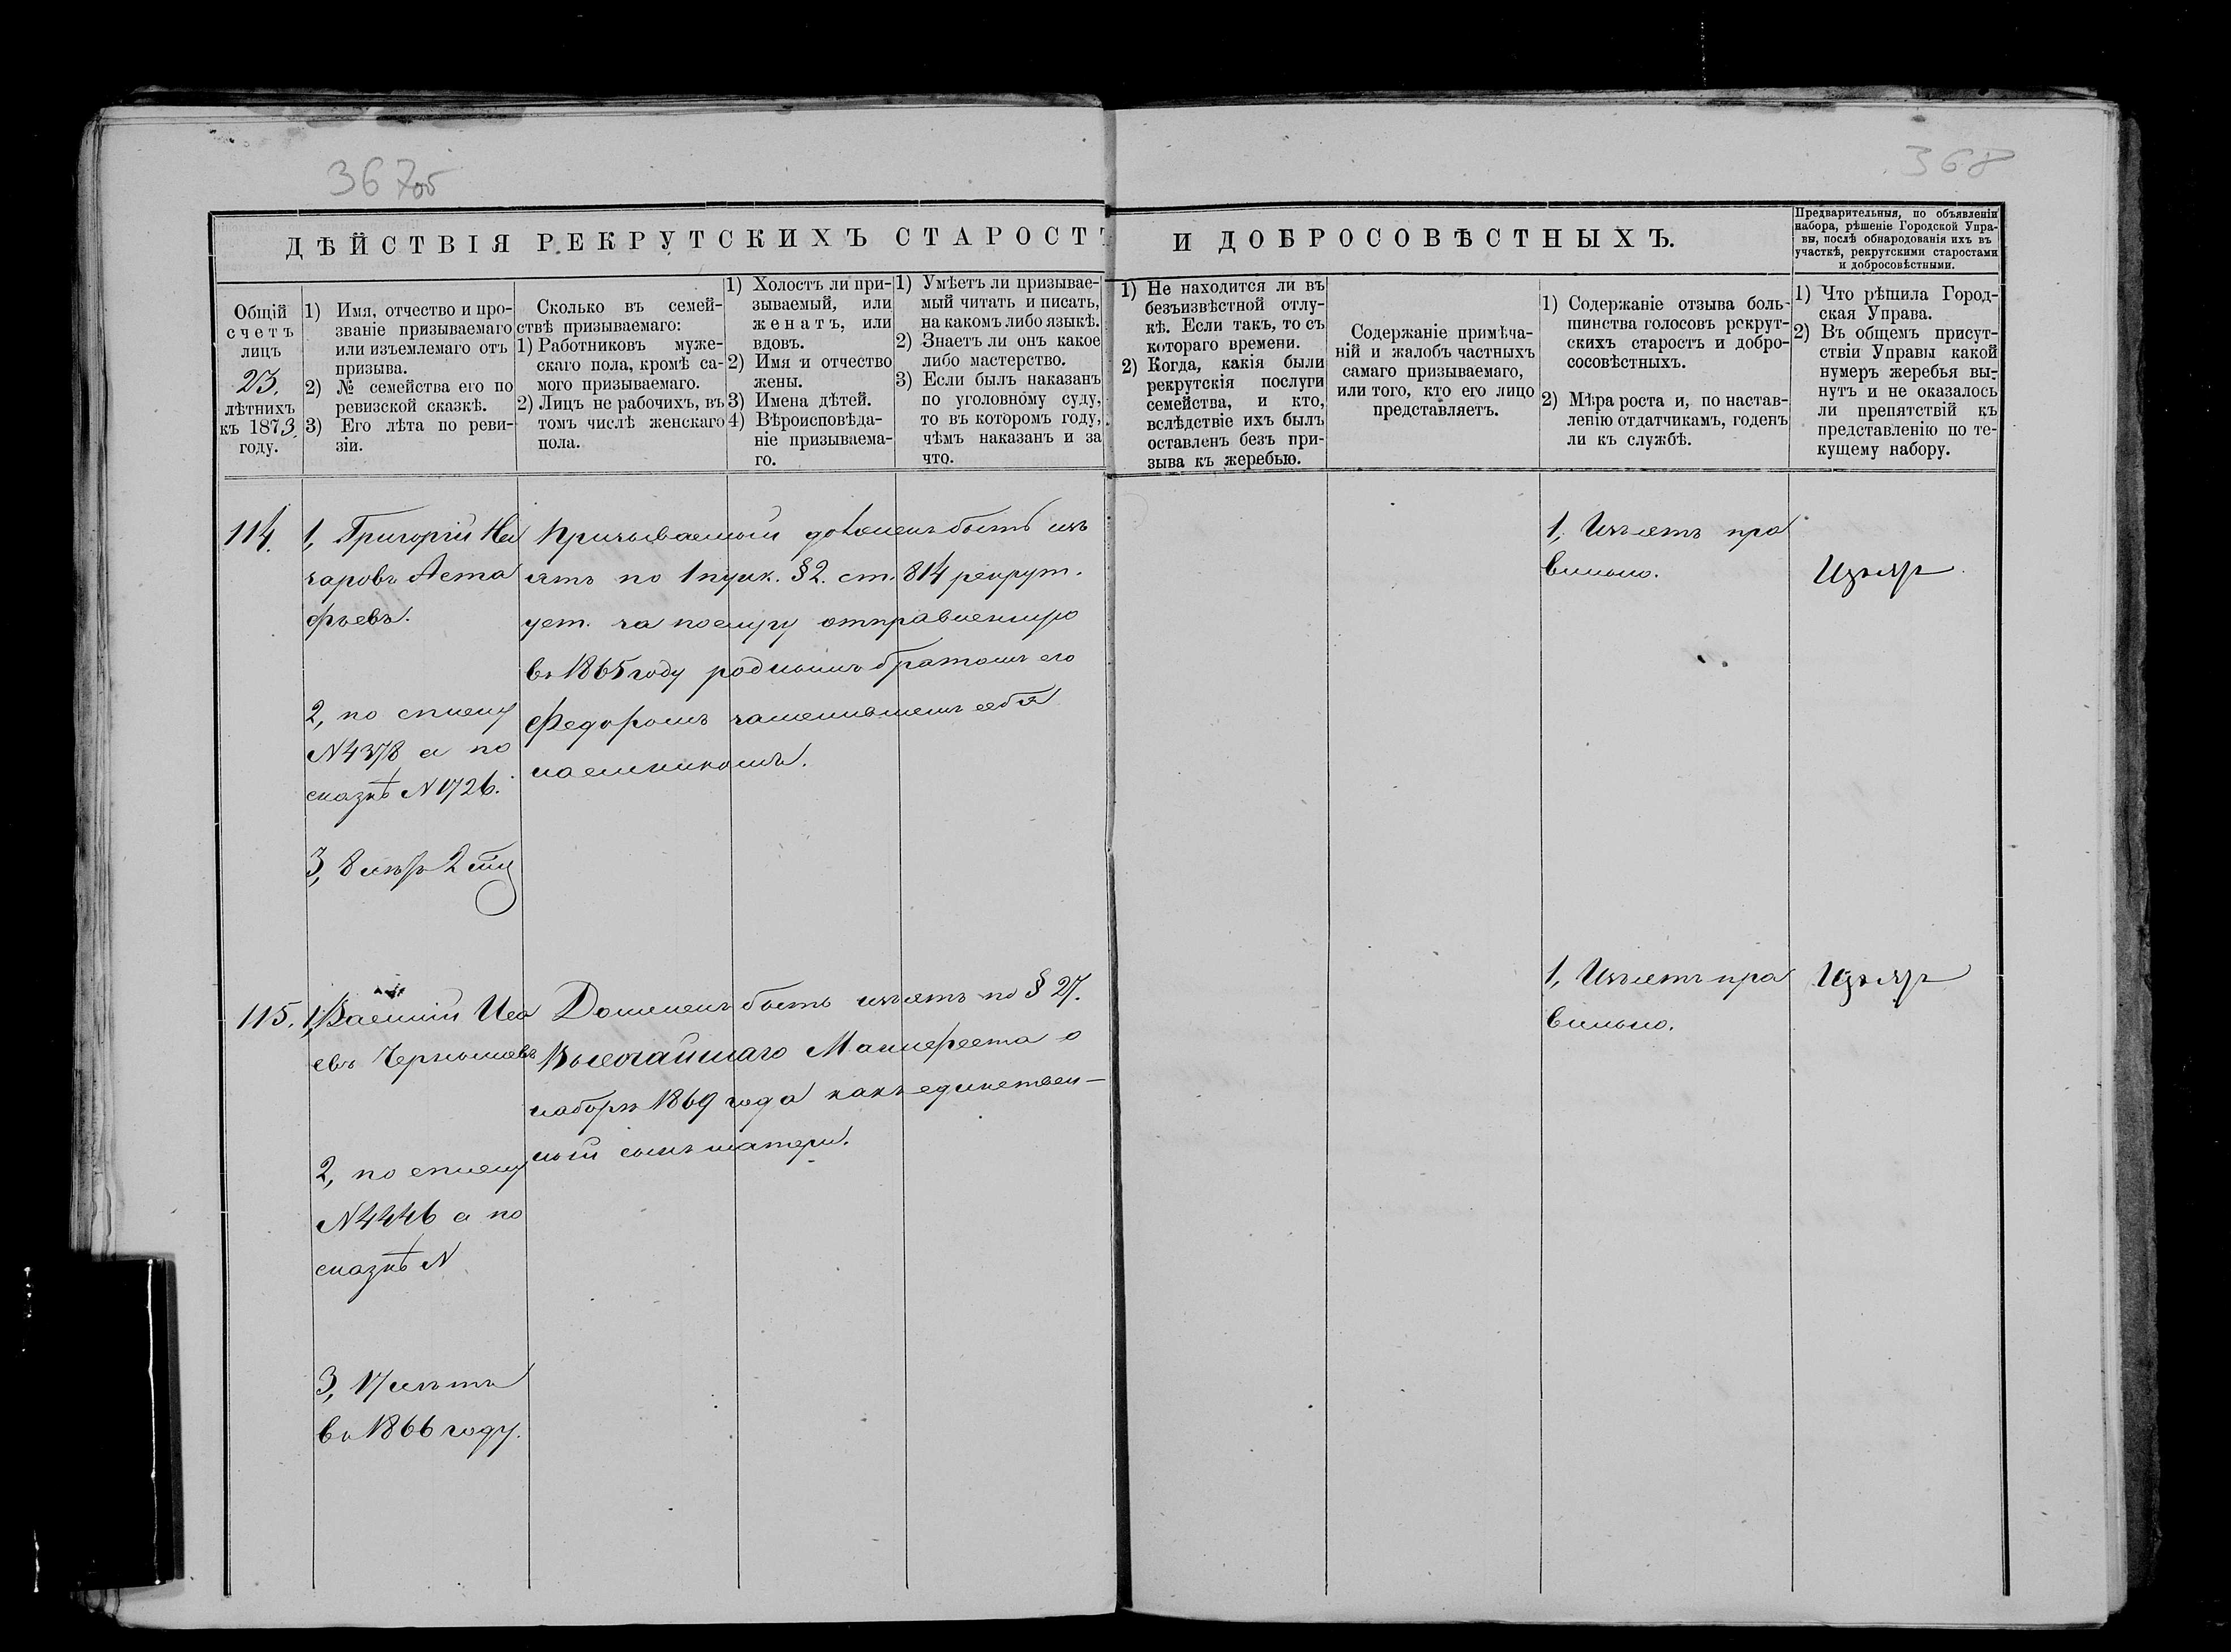 367об
368
ДѢЙСТВІЯ РЕКРУТСКИХЪ СТАРОСТЪ
И ДОБРОСОВѢСТНЫХЪ.
Предварительныя, по объявленіи
набора, рѣшеніе Городской Упра-
вы, послѣ обнародованія ихъ въ
участкѣ, рекрутскими старостами
и добросовѣстными.
Общій
счетъ
лицъ
23.
лѣтнихъ
къ 1873
году.
1) Имя, отчество и про-
званіе призываемаго
или изъемлемаго отъ
призыва.
2) № семейства его по
ревизской сказкѣ.
3) Его лѣта по реви-
зіи.
Сколько въ семей-
ствѣ призываемаго:
1) Работниковъ муже-
скаго пола, кромѣ са-
мого призываемаго.
2) Лицъ не рабочихъ, въ
томъ числѣ женскаго
пола.
1) Холостъ ли при-
зываемый, или
женатъ, или
вдовъ.
2) Имя и отчество
жены.
3) Имена дѣтей.
4) Вѣроисповѣда-
ніе призываема-
го.
1) Умѣетъ ли призывае-
мый читать и писать,
на какомъ либо языкѣ.
2) Знаетъ ли онъ какое
либо мастерство.
3) Если былъ наказанъ
по уголовному суду,
то въ которомъ году,
чѣмъ наказанъ и за
что.
1) Не находится ли въ
безъизвѣстной отлу-
кѣ. Если такъ, то съ
котораго времени.
2) Когда, какія были
рекрутскія послуги
семейства, и кто,
вслѣдствіе ихъ былъ
оставленъ безъ при-
зыва къ жеребью.
Содержаніе примѣча-
ній и жалобъ частныхъ
самаго призываемаго,
или того, кто его лицо
представляетъ.
1) Содержаніе отзыва боль-
шинства голосовъ рекрут-
скихъ старостъ и добро-
сосовѣстныхъ.
2) Мѣра роста и, по настав-
ленію отдатчикамъ, годенъ
ли къ службѣ.
1) Что рѣшила Город-
ская Управа.
2) Въ общемъ присут-
ствіи Управы какой
нумеръ жеребья вы-
нутъ и не оказалось
ли препятствій къ
представленію по те-
кущему набору.
114.
1, Григорій
заровъ Аста
фьевъ.
2, по списку
N4378 а по
сказкѣ N1726.
3, 8 лѣтъ 2 мц
Призываемый долженъ быть изъ
ятъ по 1 пунк. §2. ст. 814 рекрут.
уст. за послугу отправленную
въ 1865 году роднымъ братомъ его
Федоромъ заменившемъ себя
наемникомъ.
1, Изъятъ пра
вильно.
Изъят
115.
1, Василій Иса
евъ Чернышевъ
2, по списку
N4446 а по
сказкѣ N
3, 17 летъ
въ 1866 году.
Долженъ быть изъятъ по § 27.
Высочайшаго Манифеста о
наборѣ 1869 года какъ единствен-
ный сынъ матери.
1, Изъятъ пра
вильно.
Изъят